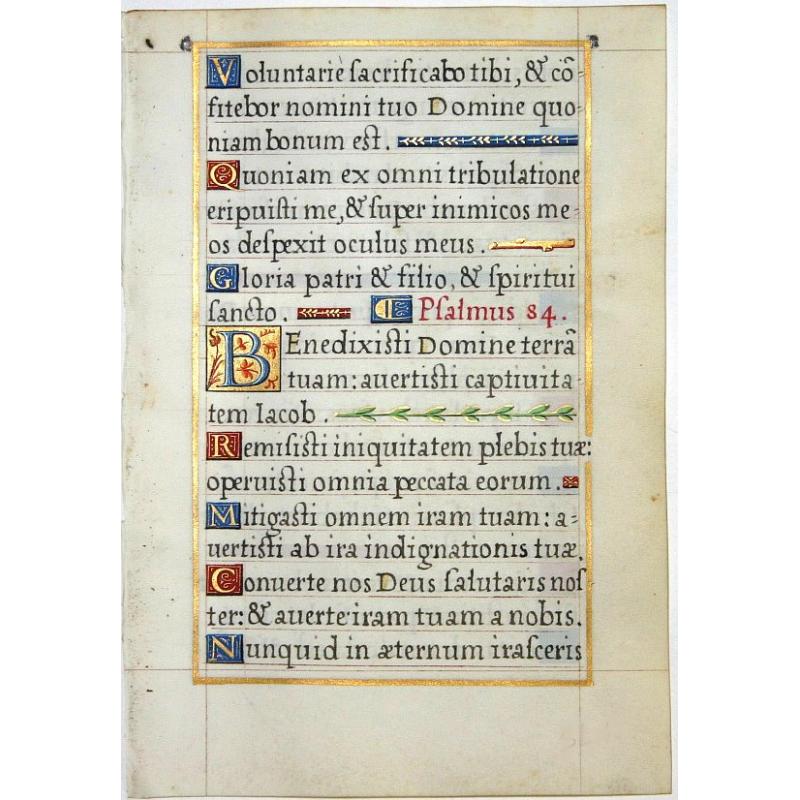 Voluntarie ſacrificabo tibi, & cõ-
fitebor nomini tuo Domine quo-
niam bonum eſt.
Quoniam ex omni tribulatione
eripuiſti me, & ſuper inimicos me-
os deſpexit oculus meus.
Gloria patri & filio, & ſpiritui
ſancto. Pſalmus 84.
BEnedixiſti Domine terrã
tuam: auertiſti captiuita-
tem Iacob.
Remiſiſti iniquitatem plebis tuæ:
operuiſti omnia peccata eorum.
Mitigaſti omnem iram tuam: a-
uertiſti ab ira indignationis tuæ.
Conuerte nos Deus ſalutaris noſ
ter: & auerte iram tuam a nobis.
Nunquid in æternum iraſceris